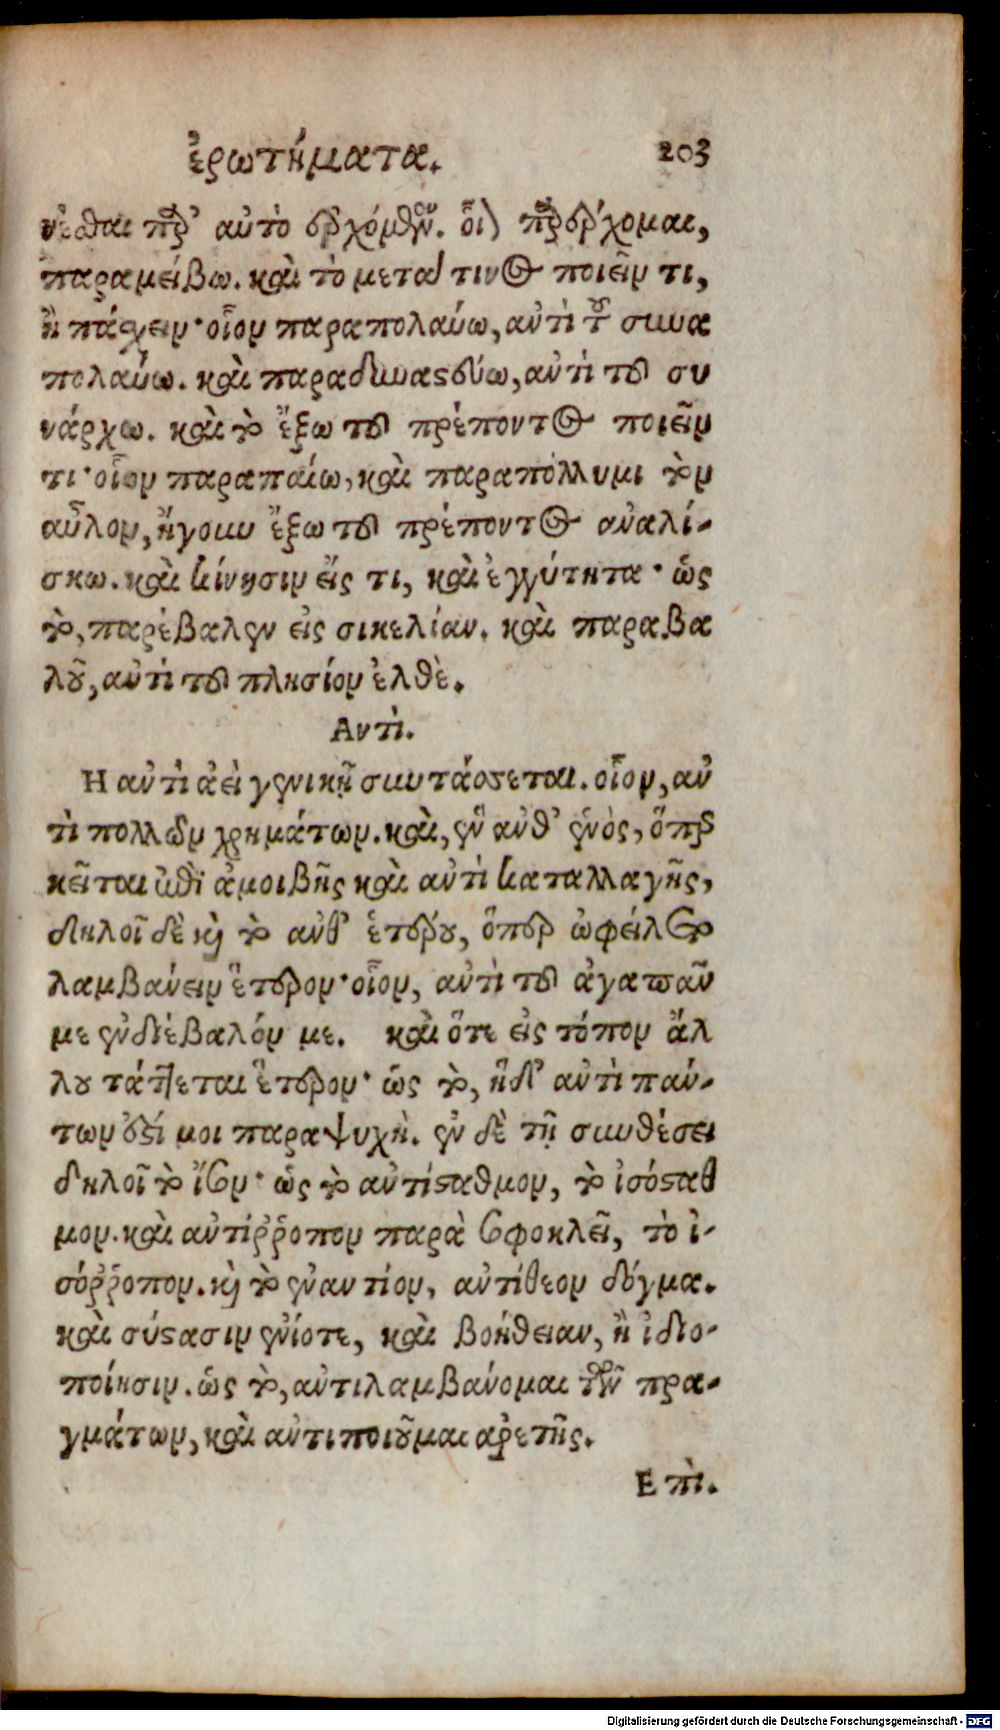 ἐρωτήματα. 203
νέσθαι παρ' αὐτὸ ἐρχόμενον. οἷον παρέρχομαι,
παραμείβω. καὶ τὸ μετά τινος ποιεῖν τι,
ἢ πάσχειν· οἷον παραπολαύω, ἀντὶ τοῦ συνα
πολαύω. καὶ παραδυναστεύω, ἀντὶ τοῦ συ
νάρχω. καὶ τὸ ἔξω τοῦ πρέποντος ποιεῖν
τι· οἷον παραπαίω, καὶ παραπόλλυμι τὸν
αὖλον, ἤγουν ἔξω τοῦ πρέποντος ἀναλί-
σκω. καὶ κίνησιν εἴς τι, καὶ ἐγγύτητα· ὡς
τὸ, παρέβαλεν εἰς σικελίαν. καὶ παραβα
λοῦ, ἀντὶ τοῦ πλησίον ἐλθὲ.
Αντὶ.
Η ἀντὶ ἀεὶ γενικῇ συντάσσεται. οἷον, ἀν
τὶ πολλῶν χρημάτων. καὶ, ἓν ἀνθ' ἑνὸς, ὅπερ
κεῖται ἐπὶ ἀμοιβῆς καὶ ἀντὶ καταλλαγῆς,
δηλοῖ δὲ καὶ τὸ ἀνθ' ἑτέρου, ὅπερ ὠφέιλετο
λαμβάνειν ἕτερον· οἷον, ἀντὶ τοῦ ἀγαπᾶν
με ἐνδιέβαλόν με. καὶ ὅτε εἰς τόπον ἄλ
λου τάττεται ἕτερον· ὡς τὸ, ἥδ' ἀντὶ πάν-
των ἐστί μοι παραψυχὴ. ἐν δὲ τῇ συνθέσει
δηλοῖ τὸ ἴσον· ὡς τὸ ἀντίσταθμον, τὸ ἰσόσταθ
μον. καὶ ἀντίῤῥοπον παρὰ σοφοκλεῖ, τὸ ἰ-
σόῤῥοπον. καὶ τὸ ἐναντίον, ἀντίθεον δόγμα.
καὶ σύστασιν ἐνίοτε, καὶ βοήθειαν, ἢ ἰδιο-
ποίησιν. ὡς τὸ, ἀντιλαμβάνομαι τῶν πρα-
γμάτων, καὶ ἀντιποιοῦμαι ἀρετῆς.
Επὶ.
Digitalisierung gefördert durch die Deutsche Forschungsgemeinschaft - DFG